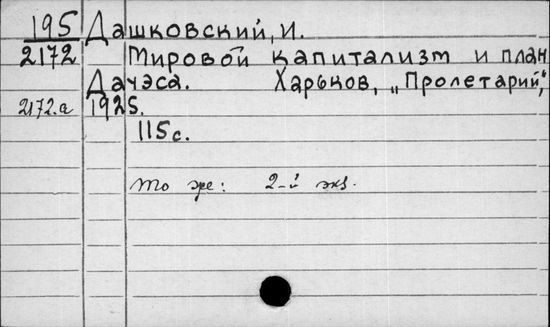 195 Дашковский, И.
2172 Мировой капитализм и план
Дауэса. Харьков, „Пролетарий",
2172.а 1925.
115 с.
то же: 2-й экз.